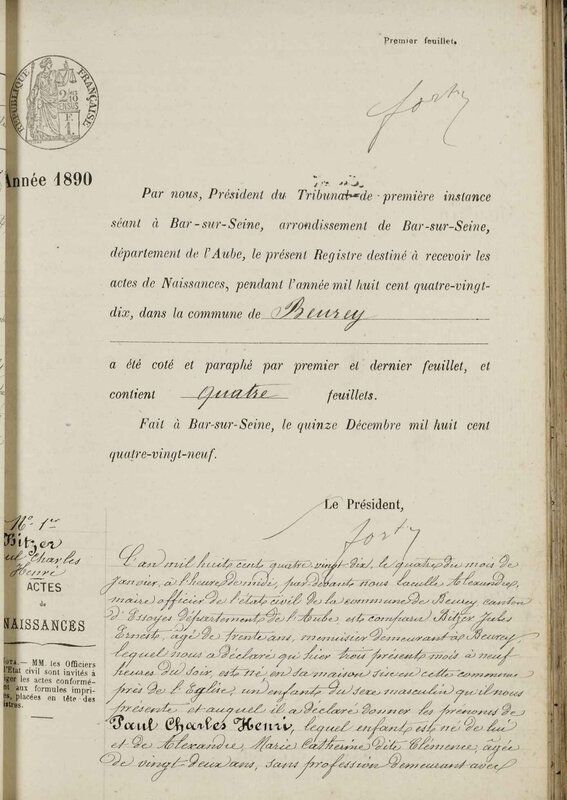 Premier feuillet.
RÉPUBLIQUE FRANÇAISE
2/10
EN SUS
F.
1.
forty
Année 1890
Par nous, Président du Tribunal de première instance
séant à Bar-sur-Seine, arrondissement de Bar-sur-Seine,
département de l'Aube, le présent Registre destiné à recevoir les
actes de Naissances, pendant l'année mil huit cent quatre-vingt-
dix, dans la commune de Beurey
a été coté et paraphé par premier et dernier feuillet, et
contient quatre feuillets.
Fait à Bar-sur-Seine, le quinze Décembre mil huit cent
quatre-vingt-neuf.
Le Président,
forty
No. 1er
Bitzer
Paul Charles
Henri
ACTES
de
NAISSANCES
NOTA. — MM. les Officiers
l'Etat civil sont invités à
conformé-
aux formules impri-
placées en tête des
L'an mil huit cent quatre vingt-dix, le quatre du mois de
janvier, à l'heure de midi, par devant nous Alexandre,
maire officier de l'état civil de la commune de Beurey canton
d'Essoyes département de l'Aube, est comparu Bitzer Jules
Ernest, âgé de trente ans, menuisier demeurant à Beurey
lequel nous a déclaré qui hier trois présent mois à neuf
heures du soir, est né en sa maison sise en cette commune
près de l'Eglise, un enfant du sexe masculin qu'il nous
présente et auquel il a déclaré donner les prénoms de
Paul Charles Henri, lequel enfant est né de lui
et de Alexandre Marie Catherine dite Clémence, âgée
de vingt-deux ans, sans profession demeurant avec